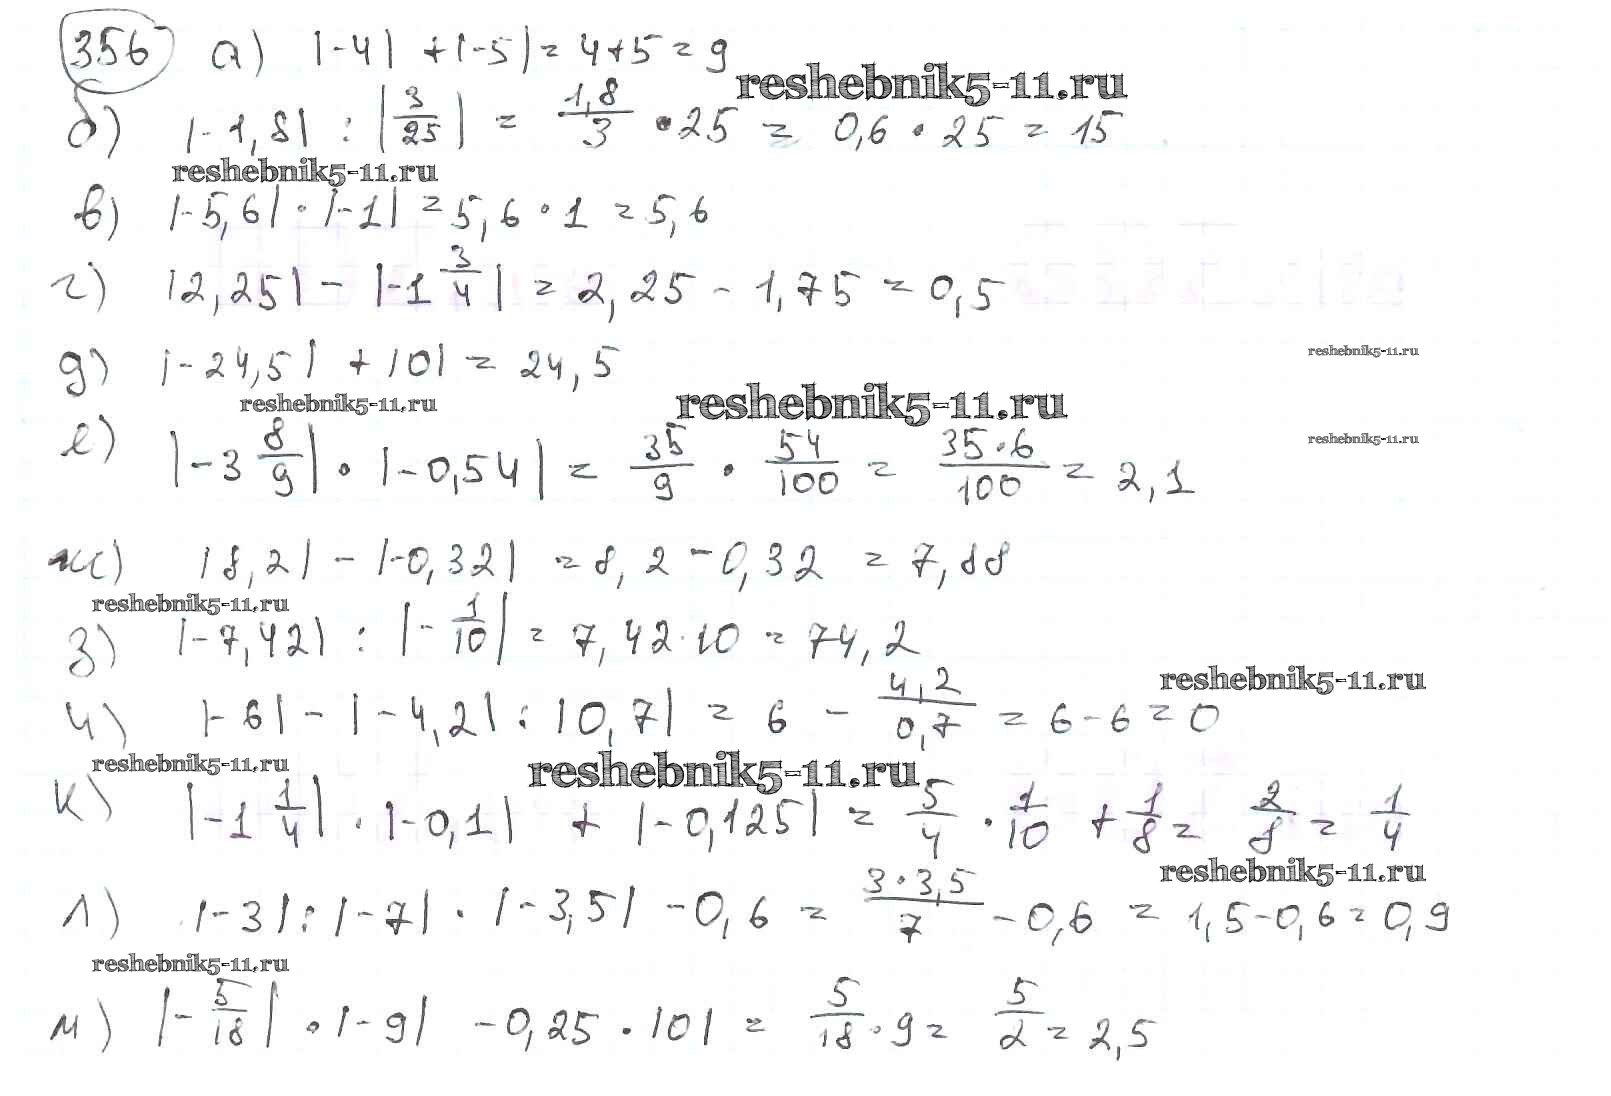 356 а) |-4| + |-5| = 4+5 = 9
reshebnik5-11.ru
б) |-1,8| : |3/25| = 1,8/3 · 25 = 0,6 · 25 = 15
reshebnik5-11.ru
в) |-5,6| · |-1| = 5,6 · 1 = 5,6
г) |2,25| - |-1 3/4| = 2,25 - 1,75 = 0,5
reshebnik5-11.ru
д) |-24,5| + |0| = 24,5
reshebnik5-11.ru
reshebnik5-11.ru
reshebnik5-11.ru
е) |-3 8/9| · |-0,54| = 35/9 · 54/100 = 35·6/100 = 2,1
ж) |8,2| - |-0,32| = 8,2 - 0,32 = 7,88
reshebnik5-11.ru
з) |-7,42| : |-1/10| = 7,42·10 = 74,2
reshebnik5-11.ru
и) |-6| - |-4,2| : |0,7| = 6 - 4,2/0,7 = 6-6 = 0
reshebnik5-11.ru
reshebnik5-11.ru
к) |-1 1/4| · |-0,1| + |-0,125| = 5/4 · 1/10 + 1/8 = 2/8 = 1/4
reshebnik5-11.ru
л) |-3| : |-7| · |-3,5| - 0,6 = 3·3,5/7 - 0,6 = 1,5-0,6 = 0,9
reshebnik5-11.ru
м) |-5/18| · |-9| - 0,25 · |0| = 5/18 · 9 = 5/2 = 2,5